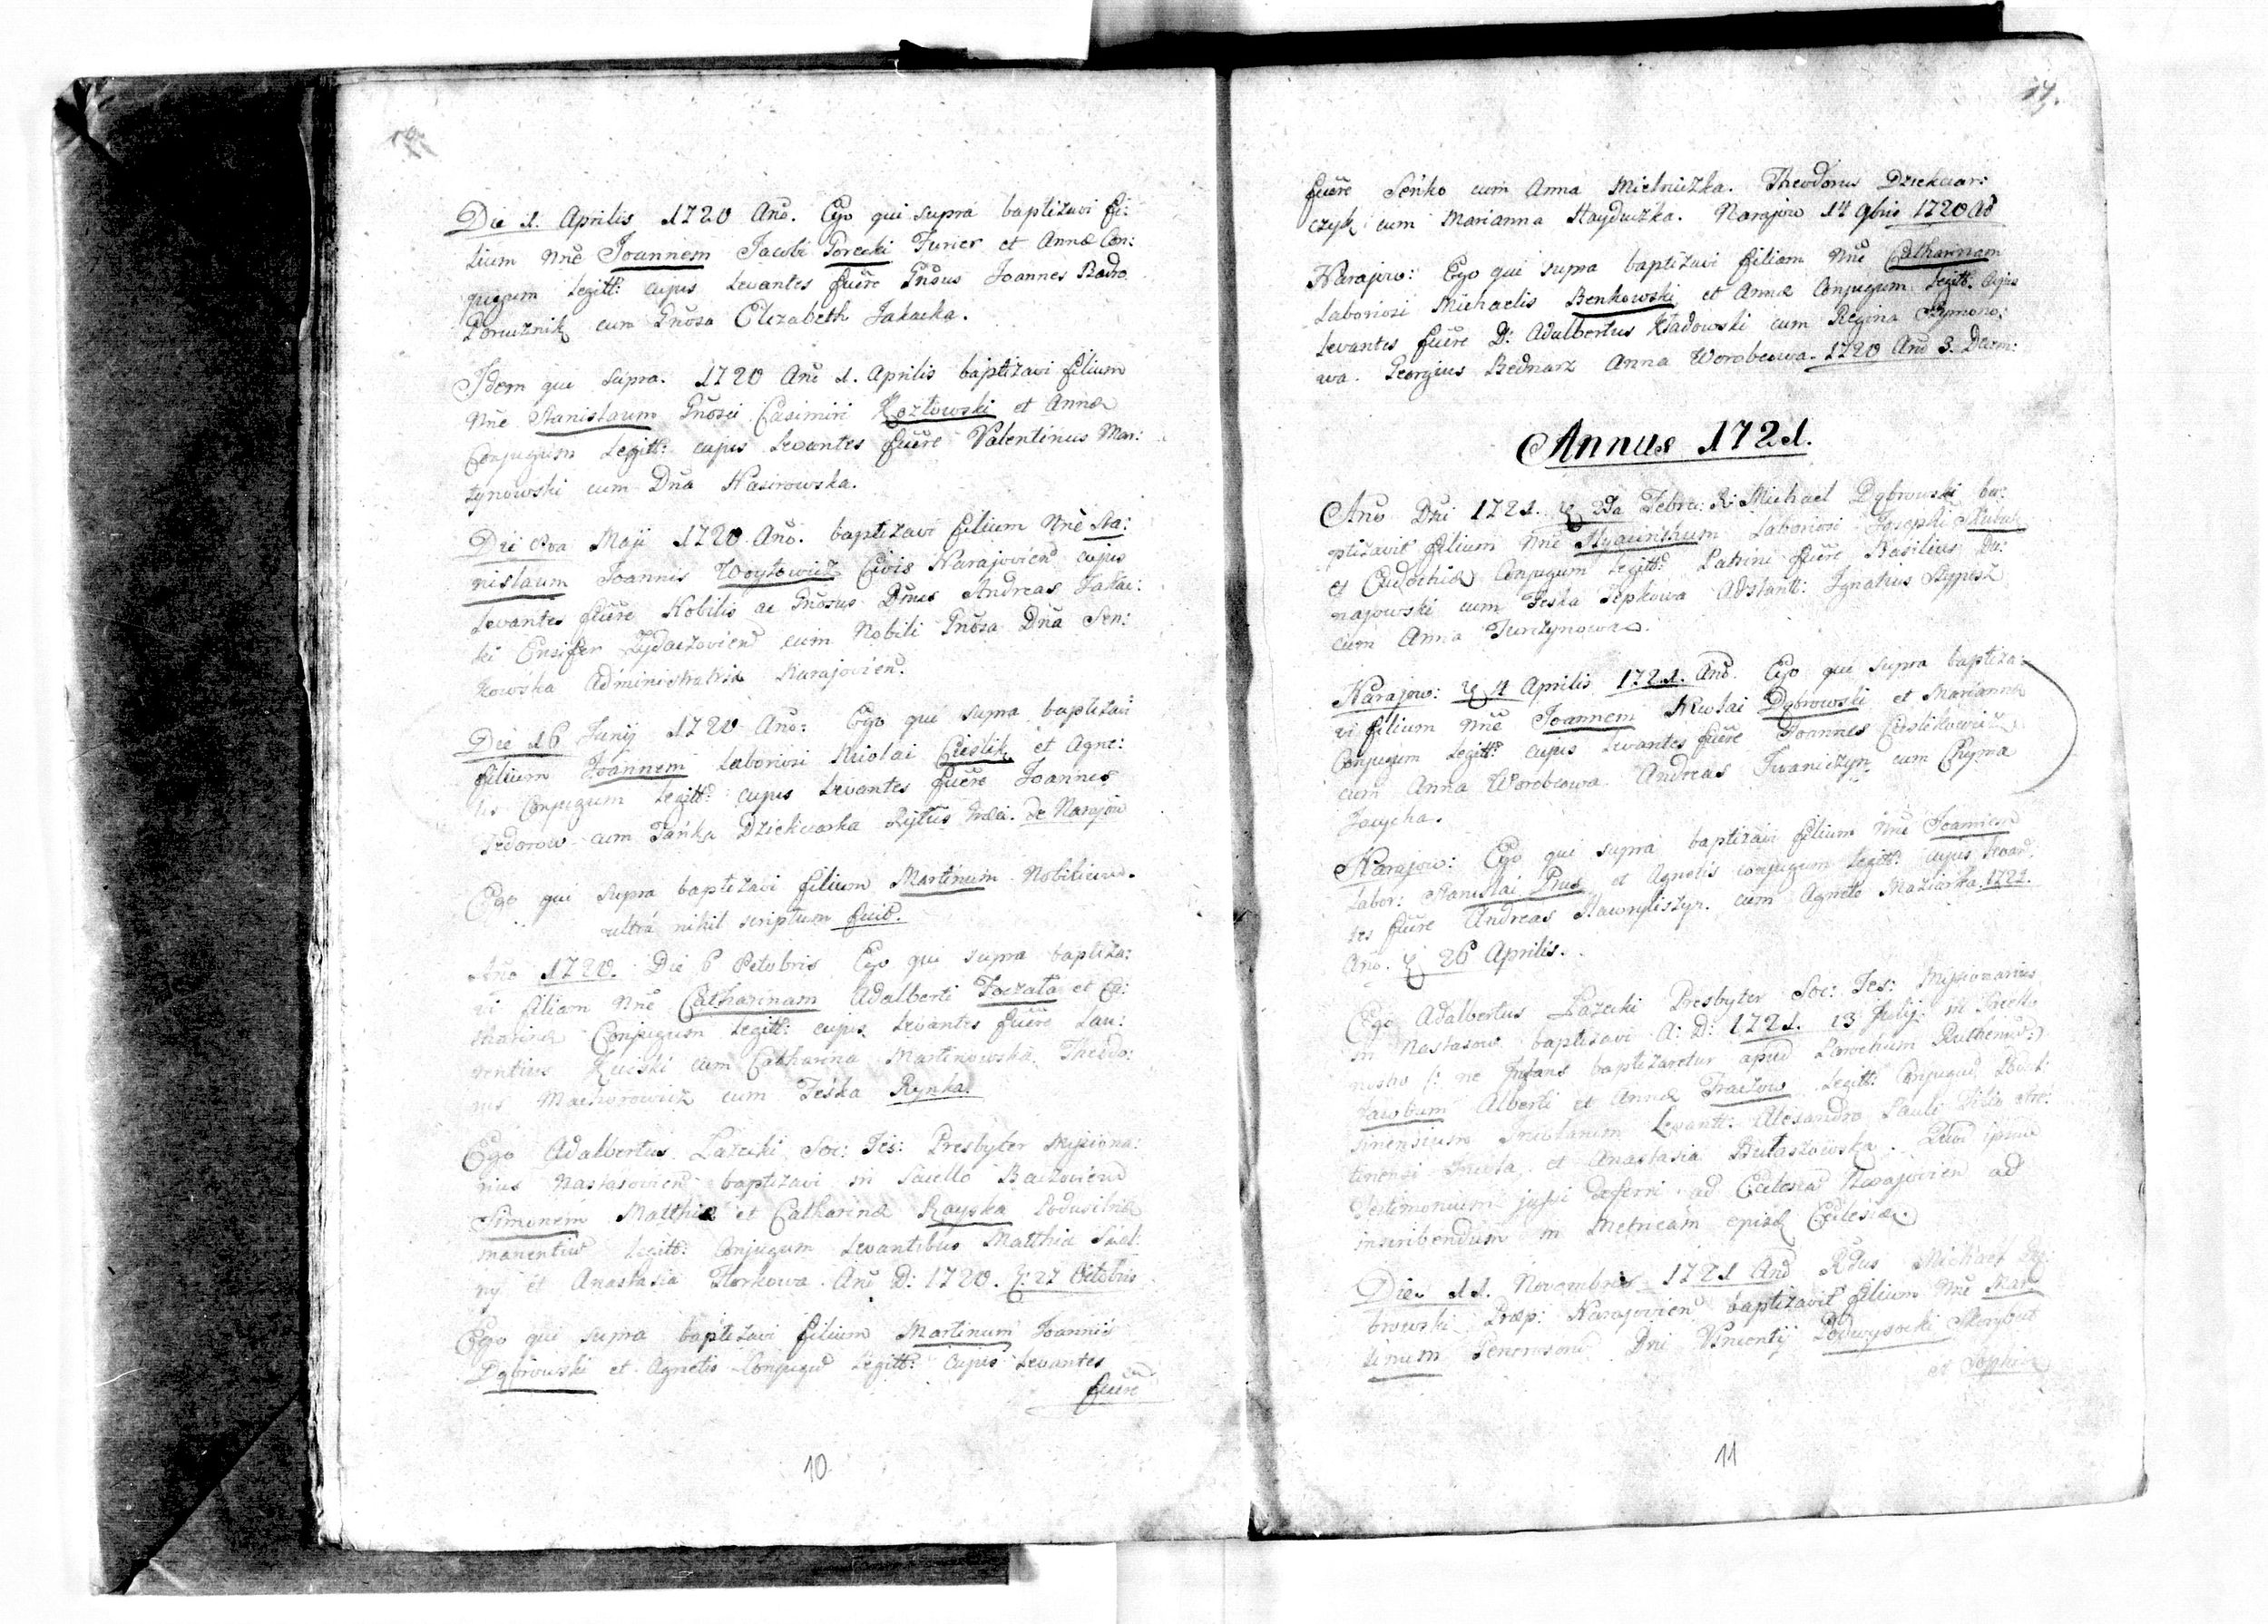 Die 1. Aprilis 1720 Ano. Ego qui supra baptizavi fi:
lium Nñe Joannem Jacobi Porecki Furier et Annæ Con:
jugum Legitt: cujus Levantes fuere Gñosus Joannes
Porucznik cum Gñosa Elizabeth Jakacka.
Idem qui supra. 1720 Ano 1. Aprilis baptizavi filium
Nñe Stanislaum Gñosi Casimiri Kozłowski et Annæ
Conjugum Legitt: cujus Levantes fuere Valentinus Mar:
tynowski cum Dña
Die Maji 1720 Ano. baptizavi filium Nñe Sta:
nislaum Joannis Woytowicz Civis Narajovien cujus
Levantes fuere Nobilis ac Gñosus Dñus Andreas Jakac:
ki Ensifer Zydaczovien cum Nobili Gñosa Dña Sen:
kowska Administratrix Narajovien.
Die 16 Junij 1720 Ano: Ego qui supra baptizavi
filium Joannem Laboriosi Nicolai Cieslik et Agne:
tis Conjugum Legitt: cujus Levantes fuere Joannes
Fedorow cum Tańka Dziekciarka Rytus Græci. de Narajow
Ego qui supra baptizavi filium Martinum Nobilium.
ultrà nihil scriptum fuit.
Ano 1720. Die 6 Octobris Ego qui supra baptiza:
vi filiam Nñe Catharinam Adalberti et Ca:
tharinæ Conjugum Legitt: cujus Levantes fuere Lau:
rentius cum Catharina Martinowska. Theodo:
rus Machorowicz cum Feśka Rynka.
Ego Adalbertus Łazecki Soc: Jes: Presbyter Missiona:
rius Nastasovien baptizavi in Sacello
Simonem Matthiæ et Catharinæ Rayska
manentiu Legitt: Conjugum Levantibus Matthia
et Anastasia Ano D: 1720. 27 Octobris
Ego qui supra baptizavi filium Martinum Joannis
Dąbrowski et Agnetis Conjugu Legitt: Cujus Levantes
fuere
10
fuere Seńko cum Anna Mielniczka. Theodorus Dziekciar:
czyk cum Marianna Hayduczka. Narajow 14 9bris 1720 Ao
Narajow: Ego qui supra baptizavi filiam Nñe Catharinam
Laboriosi Michaelis Benkowski et Annæ Conjugum Legitt. Cujus
Levantes fuere D: Adalbertus Kładowski cum Regina Szymono:
wa. Georgius Bednarz Anna Worobcowa. 1720 Ano 3. Decem:
Annus 1721.
Ano Dñi 1721. 2da Febru: R: Michael Dąbrowski ba:
ptizavit filium Nñe Hyacinthum Laboriosi Josephi
et Eudochiæ Conjugum Legitt: Patrini fuere Basilius Du:
najowski cum Feska Adstantt: Ignatius
cum Anna Jurczynowa.
Narajow: 4 Aprilis 1721. Ano. Ego qui supra baptiza:
vi filium Nñe Joannem Nicolai Dąbrowski et Mariannæ
Conjugum Legitt: cujus Levantes fuere Joannes Cieslikowicz
cum Anna Worobcowa. Andreas Iwaniczyn cum
Narajow: Ego qui supra baptizavi filium Nñe Joannem
Labor: Stanislai Prus et Agnetis conjugum Legitt: cujus Levan
tes fuere Andreas Hawryliszyn. cum Agnete Maziarka. 1721.
Ano. 26 Aprilis.
Ego Adalbertus Łazecki Presbyter Soc: Jes: Missionarius
in Nastasow baptizavi A: D: 1721. 13 Julij
nosho (: ne Infans baptizaretur apud Parochum Ruthenum:)
Jacobum Alberti et Annæ Legitt: Conjugu
Incolarum Levantt: Alexandro Pauli Filio
Incola et Anastasia
testimonium jussi deferri ad Ecclesia Narajovien ad
inscribendum in Metricam Ecclesiæ.
Die 11. Novembris 1721 Ano Rdus Michael Dą:
browski Præp: Narajovien baptizavit filium Nñe Mar
tinum Generosoru Dñi Vincentij Podwysocki
et Sophiæ
11